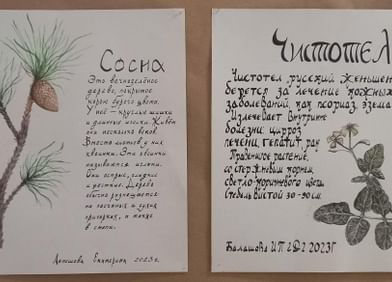 Сосна
Это вечнозелёное
дерево, покрытое
корою бурого цвета.
У неё - круглые шишки
и длинные иголки. Живёт
она несколько веков.
Вместо листьев у них
хвоинки. Эти хвоинки
называются иглами.
Они острые, гладкие
и жёсткие. Дерево
обычно размещается
на песчаных и сухих
пригорках, а также
в степи.
Екатерина 2023г.
Чистотел
Чистотел русский женьшень
берется за лечение кожных
заболеваний, как псориаз, экзема.
Излечает внутрине
болезни: цирроз
печени, гепатит, рак
Травеное растение,
со стержневым корнем
светло-коричнвого цвета.
Стебель высотой 30-90см.
Балашова ИП 2Д2 2023Г